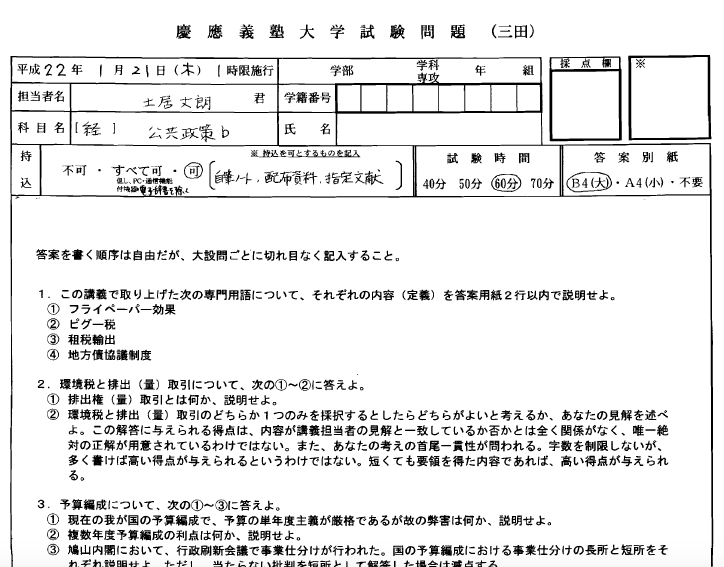 慶應義塾大学試験問題 (三田)
平成22年 1月21日(木) 1時限施行 学部 学科 専攻 年 組 採点欄 ※
担当者名 土居丈朗 君 学籍番号
科目名 [経] 公共政策b 氏名
持込 不可・すべて可・可 ※ 持込を可とするものを記入 試験時間 答案別紙
但し、PC・通信機能付機器電子辞書を除く [自筆ノート、配布資料、指定文献] 40分 50分 60分 70分 B4(大)・A4(小)・不要
答案を書く順序は自由だが、大設問ごとに切れ目なく記入すること。
1.この講義で取り上げた次の専門用語について、それぞれの内容(定義)を答案用紙2行以内で説明せよ。
① フライペーパー効果
② ピグー税
③ 租税輸出
④ 地方債協議制度
2.環境税と排出(量)取引について、次の①~②に答えよ。
① 排出権(量)取引とは何か、説明せよ。
② 環境税と排出(量)取引のどちらか1つのみを採択するとしたらどちらがよいと考えるか、あなたの見解を述べ
よ。この解答に与えられる得点は、内容が講義担当者の見解と一致しているか否かとは全く関係がなく、唯一絶
対の正解が用意されているわけではない。また、あなたの考えの首尾一貫性が問われる。字数を制限しないが、
多く書けば高い得点が与えられるというわけではない。短くても要領を得た内容であれば、高い得点が与えられ
る。
3.予算編成について、次の①~③に答えよ。
① 現在の我が国の予算編成で、予算の単年度主義が厳格であるが故の弊害は何か、説明せよ。
② 複数年度予算編成の利点は何か、説明せよ。
③ 鳩山内閣において、行政刷新会議で事業仕分けが行われた。国の予算編成における事業仕分けの長所と短所をそ
れぞれ説明せよ。ただし、当たらない批判を短所として解答した場合は減点する。